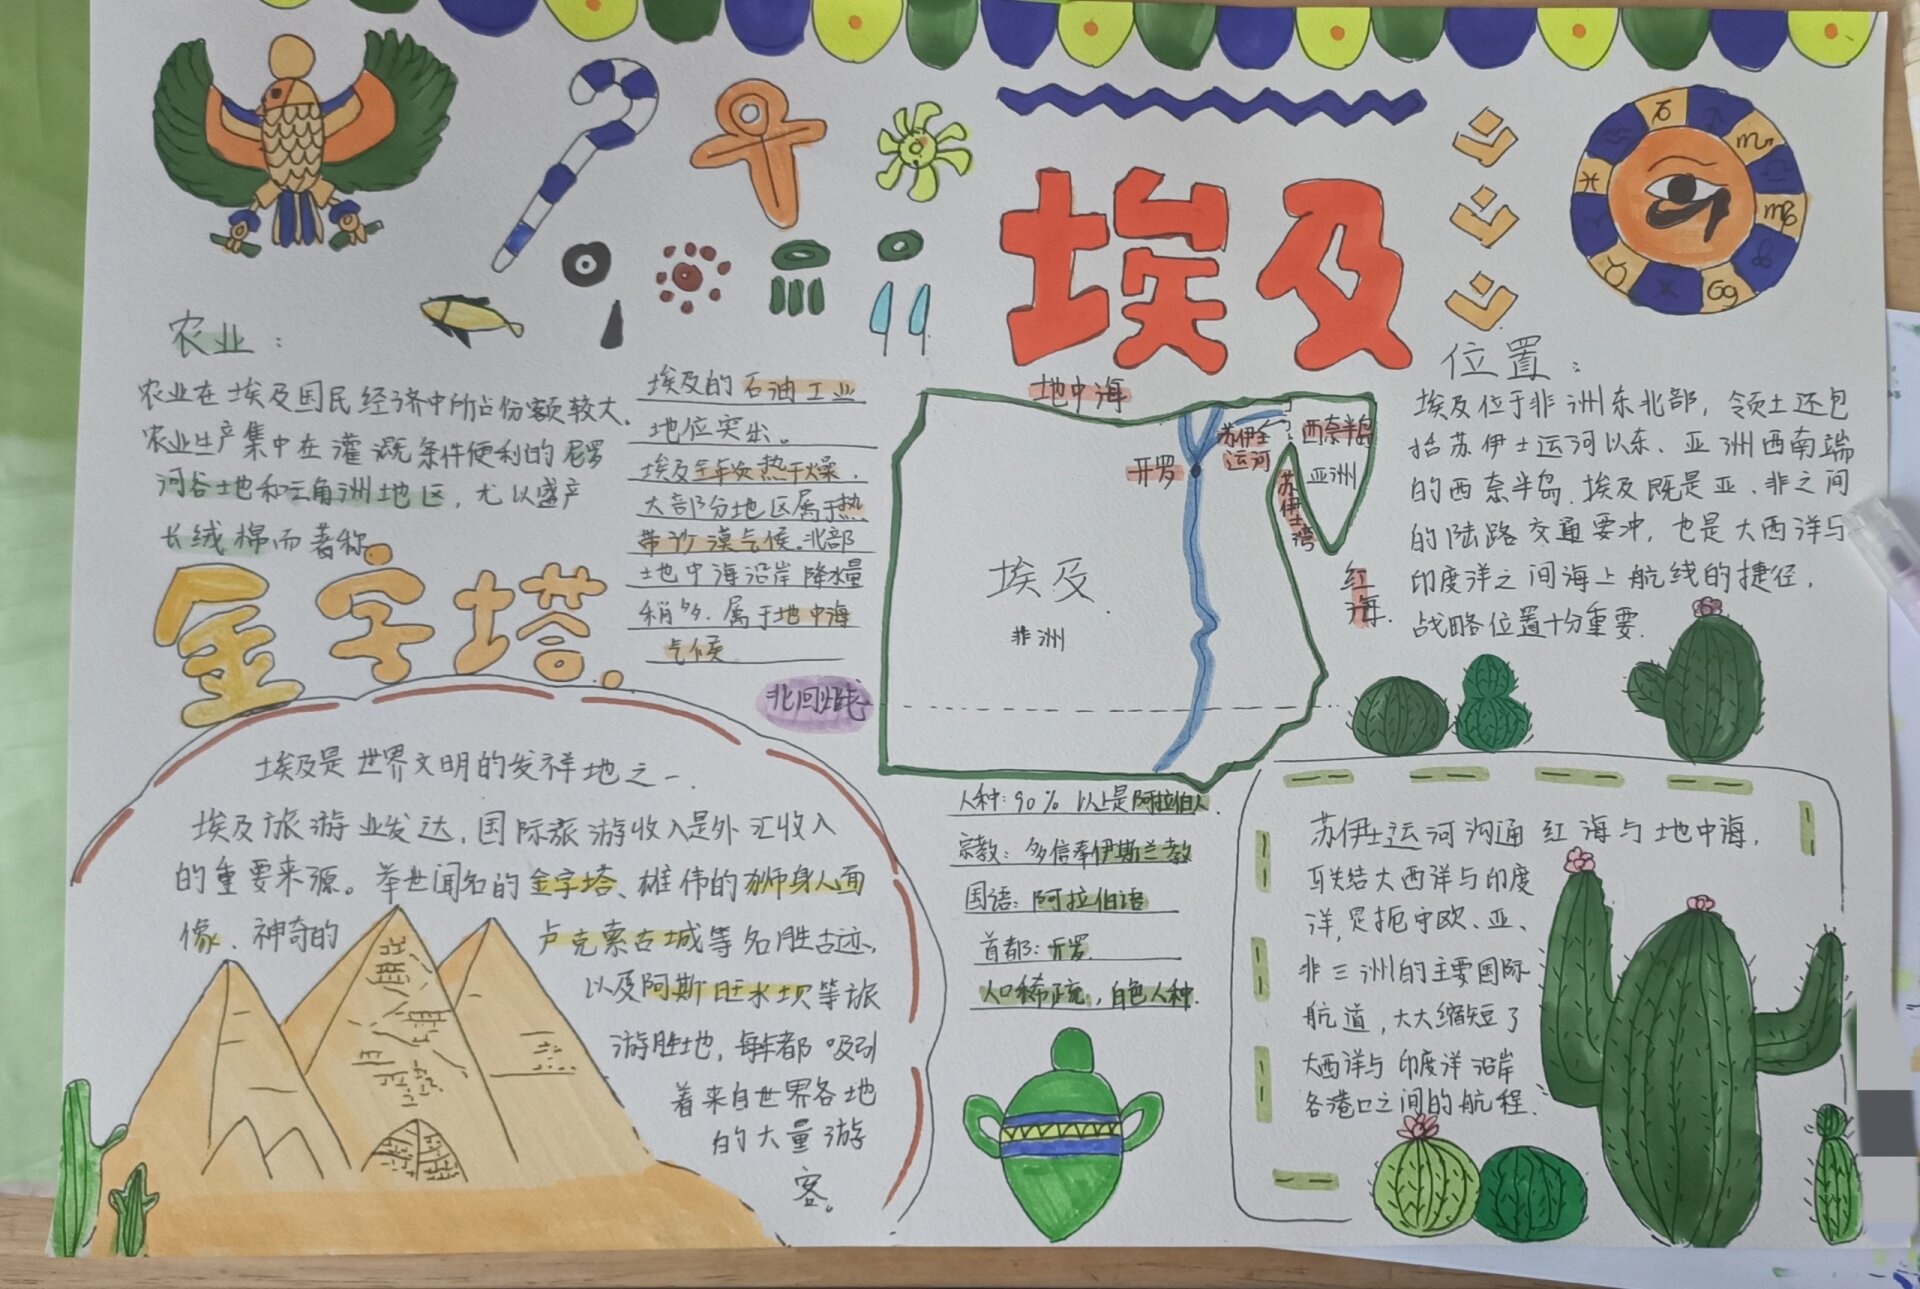 埃及
农业：
农业在埃及国民经济中所占份额较大.
农业生产集中在灌溉条件便利的尼罗
河谷地和三角洲地区，尤以盛产
长绒棉而著称.
埃及的石油工业
地位突出。
埃及全年炎热干燥，
大部分地区属于热
带沙漠气候。北部
地中海沿岸降水量
稍多.属于地中海
气候
地中海
苏伊士
运河
西奈半岛
亚洲
开罗
苏伊士湾
红海.
埃及
非洲
北回归线
位置：
埃及位于非洲东北部，领土还包
括苏伊士运河以东、亚洲西南端
的西奈半岛.埃及既是亚、非之间
的陆路交通要冲，也是大西洋与
印度洋之间海上航线的捷径，
战略位置十分重要.
金字塔.
埃及是世界文明的发祥地之一.
埃及旅游业发达，国际旅游收入是外汇收入
的重要来源。举世闻名的金字塔、雄伟的狮身人面
像、神奇的卢克索古城等名胜古迹，
以及阿斯旺水坝等旅
游胜地，每年都吸引
着来自世界各地
的大量游
客。
人种：90% 以上是阿拉伯人.
宗教：多信奉伊斯兰教
国语：阿拉伯语
首都：开罗.
人口稀疏，白色人种.
苏伊士运河沟通红海与地中海，
联结大西洋与印度
洋，是扼守欧、亚、
非三洲的主要国际
航道，大大缩短了
大西洋与印度洋沿岸
各港口之间的航程.